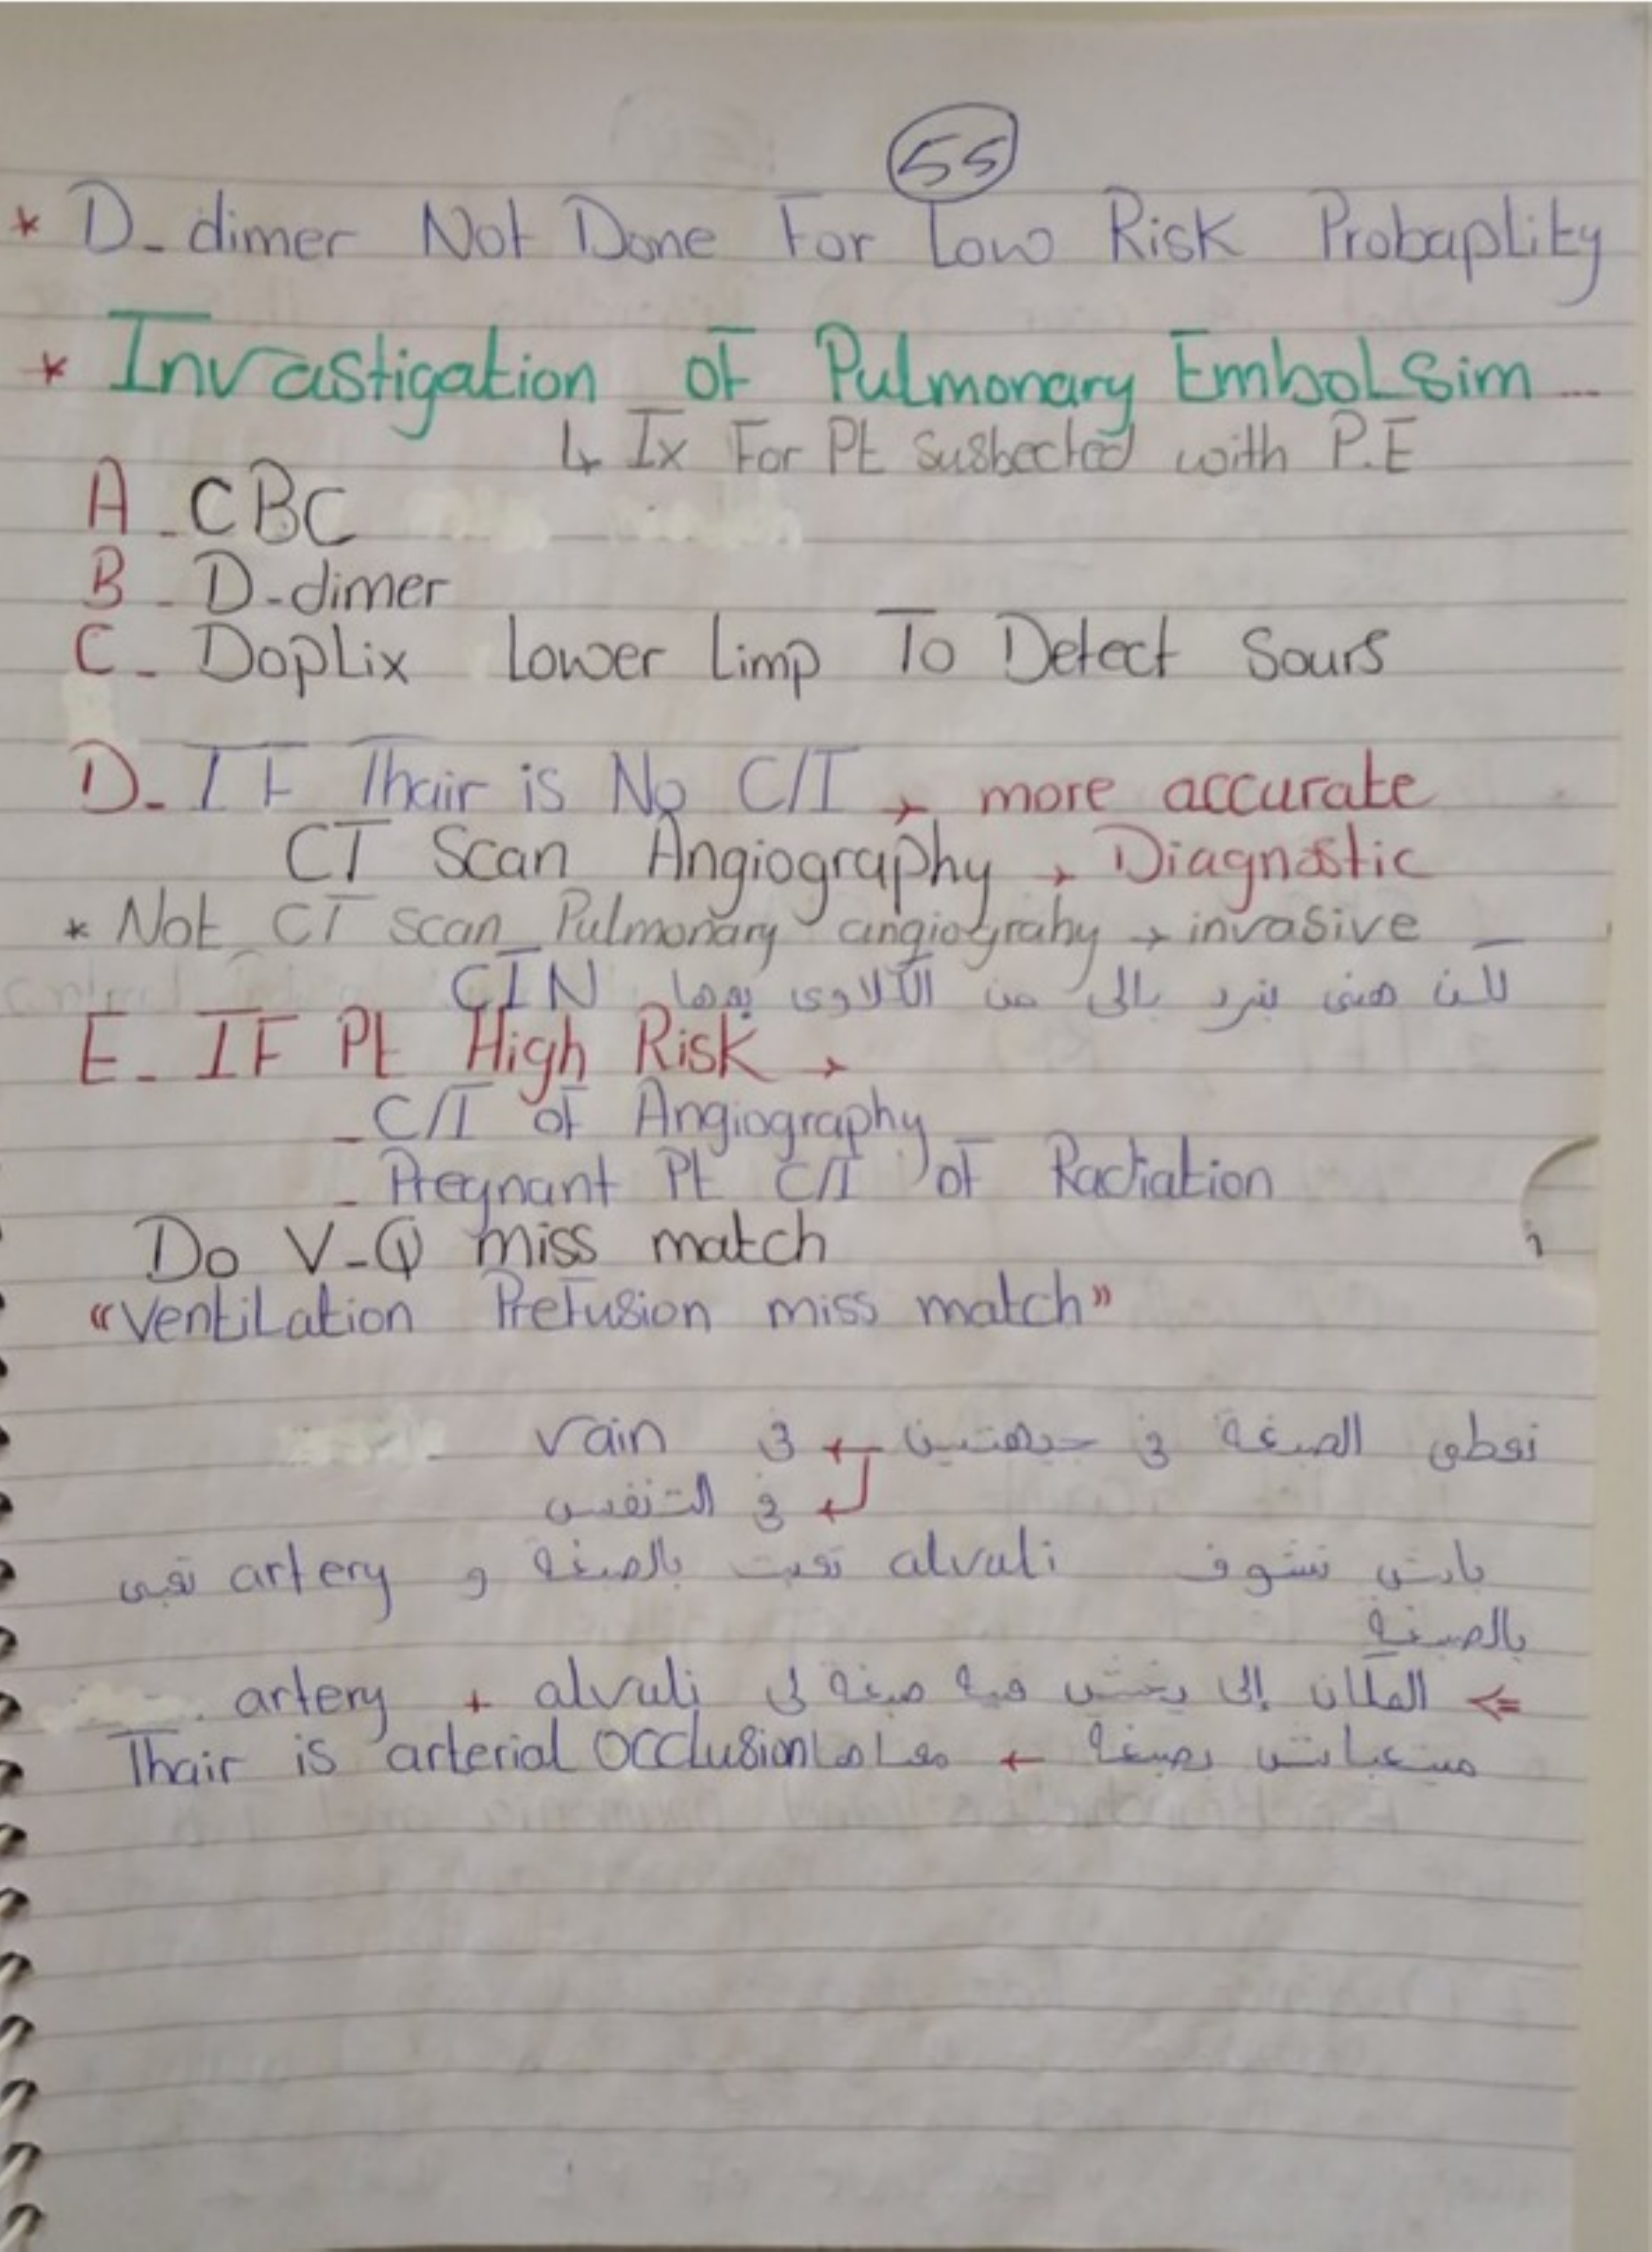 55
* D-dimer Not Done For Low Risk Probaplity
* Invastigation of Pulmonary Embolsim ...
↳ Ix For Pt susbected with P.E
A - CBC
B - D-dimer
C - Doplix Lower Limp To Detect Sours
D - IF Thair is No C/I → more accurate
CT Scan Angiography → Diagnostic
* Not CT scan Pulmonary angiograhy → invasive
لكن هنى نرد بالى من الكلاوى بعدها CIN
E - IF Pt High Risk →
- C/I of Angiography
- Pregnant Pt C/I of Radiation
Do V-Q miss match
"Ventilation Prefusion miss match"
نعطى الصبغة في جيهتين ← في vain
← في التنفس
باش نشوف alvuli تعبت بالصبغة و artery تعبى
بالصبغة
⇐ المكان إلى يخش فيه صبغة لى alvuli + artery
ميتعباش بصبغة ← معناها Thair is arterial occlusion